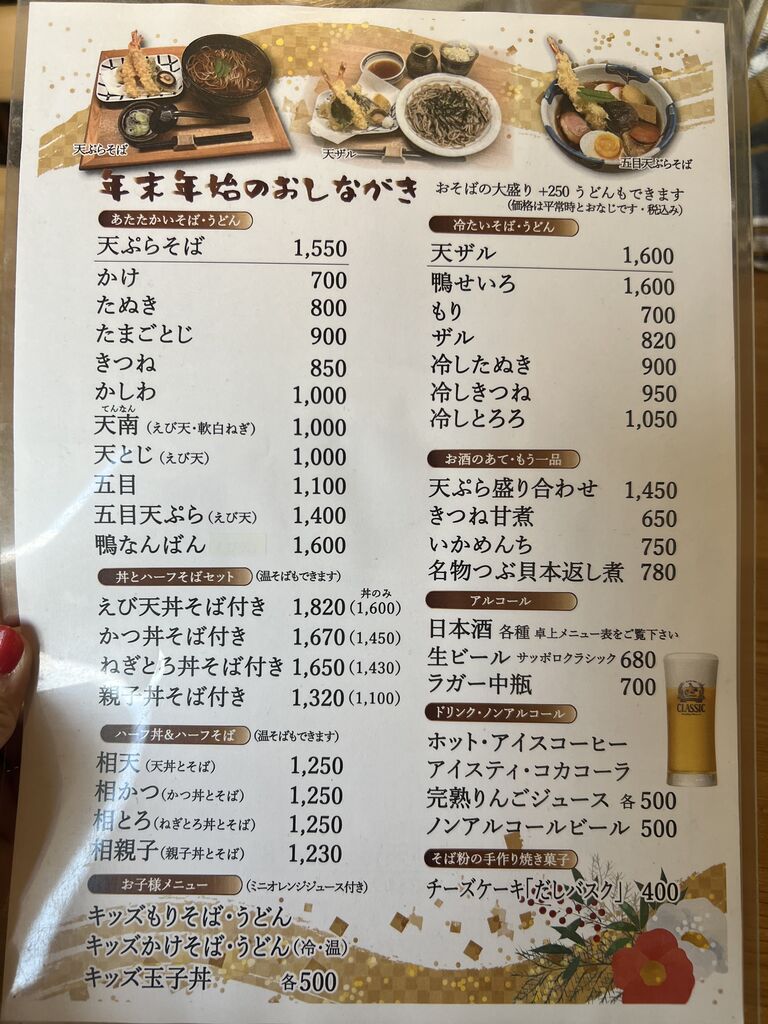 天ぷらそば
天ザル
五目天ぷらそば
年末年始のおしながき
おそばの大盛り +250 うどんもできます
(価格は平常時とおなじです・税込み)
あたたかいそば・うどん
天ぷらそば 1,550
かけ 700
たぬき 800
たまごとじ 900
きつね 850
かしわ 1,000
てんなん
天南 (えび天・軟白ねぎ) 1,000
天とじ (えび天) 1,000
五目 1,100
五目天ぷら (えび天) 1,400
鴨なんばん 1,600
丼とハーフそばセット (温そばもできます)
丼のみ
えび天丼そば付き 1,820 (1,600)
かつ丼そば付き 1,670 (1,450)
ねぎとろ丼そば付き 1,650 (1,430)
親子丼そば付き 1,320 (1,100)
ハーフ丼&ハーフそば (温そばもできます)
相天 (天丼とそば) 1,250
相かつ (かつ丼とそば) 1,250
相とろ (ねぎとろ丼とそば) 1,250
相親子 (親子丼とそば) 1,230
お子様メニュー (ミニオレンジジュース付き)
キッズもりそば・うどん
キッズかけそば・うどん (冷・温)
キッズ玉子丼 各500
冷たいそば・うどん
天ザル 1,600
鴨せいろ 1,600
もり 700
ザル 820
冷したぬき 900
冷しきつね 950
冷しとろろ 1,050
お酒のあて・もう一品
天ぷら盛り合わせ 1,450
きつね甘煮 650
いかめんち 750
名物つぶ貝本返し煮 780
アルコール
日本酒 各種 卓上メニュー表をご覧下さい
生ビール サッポロクラシック 680
ラガー中瓶 700
CLASSIC
ドリンク・ノンアルコール
ホット・アイスコーヒー
アイスティ・コカコーラ
完熟りんごジュース 各500
ノンアルコールビール 500
そば粉の手作り焼き菓子
チーズケーキ「だしバスク」 400